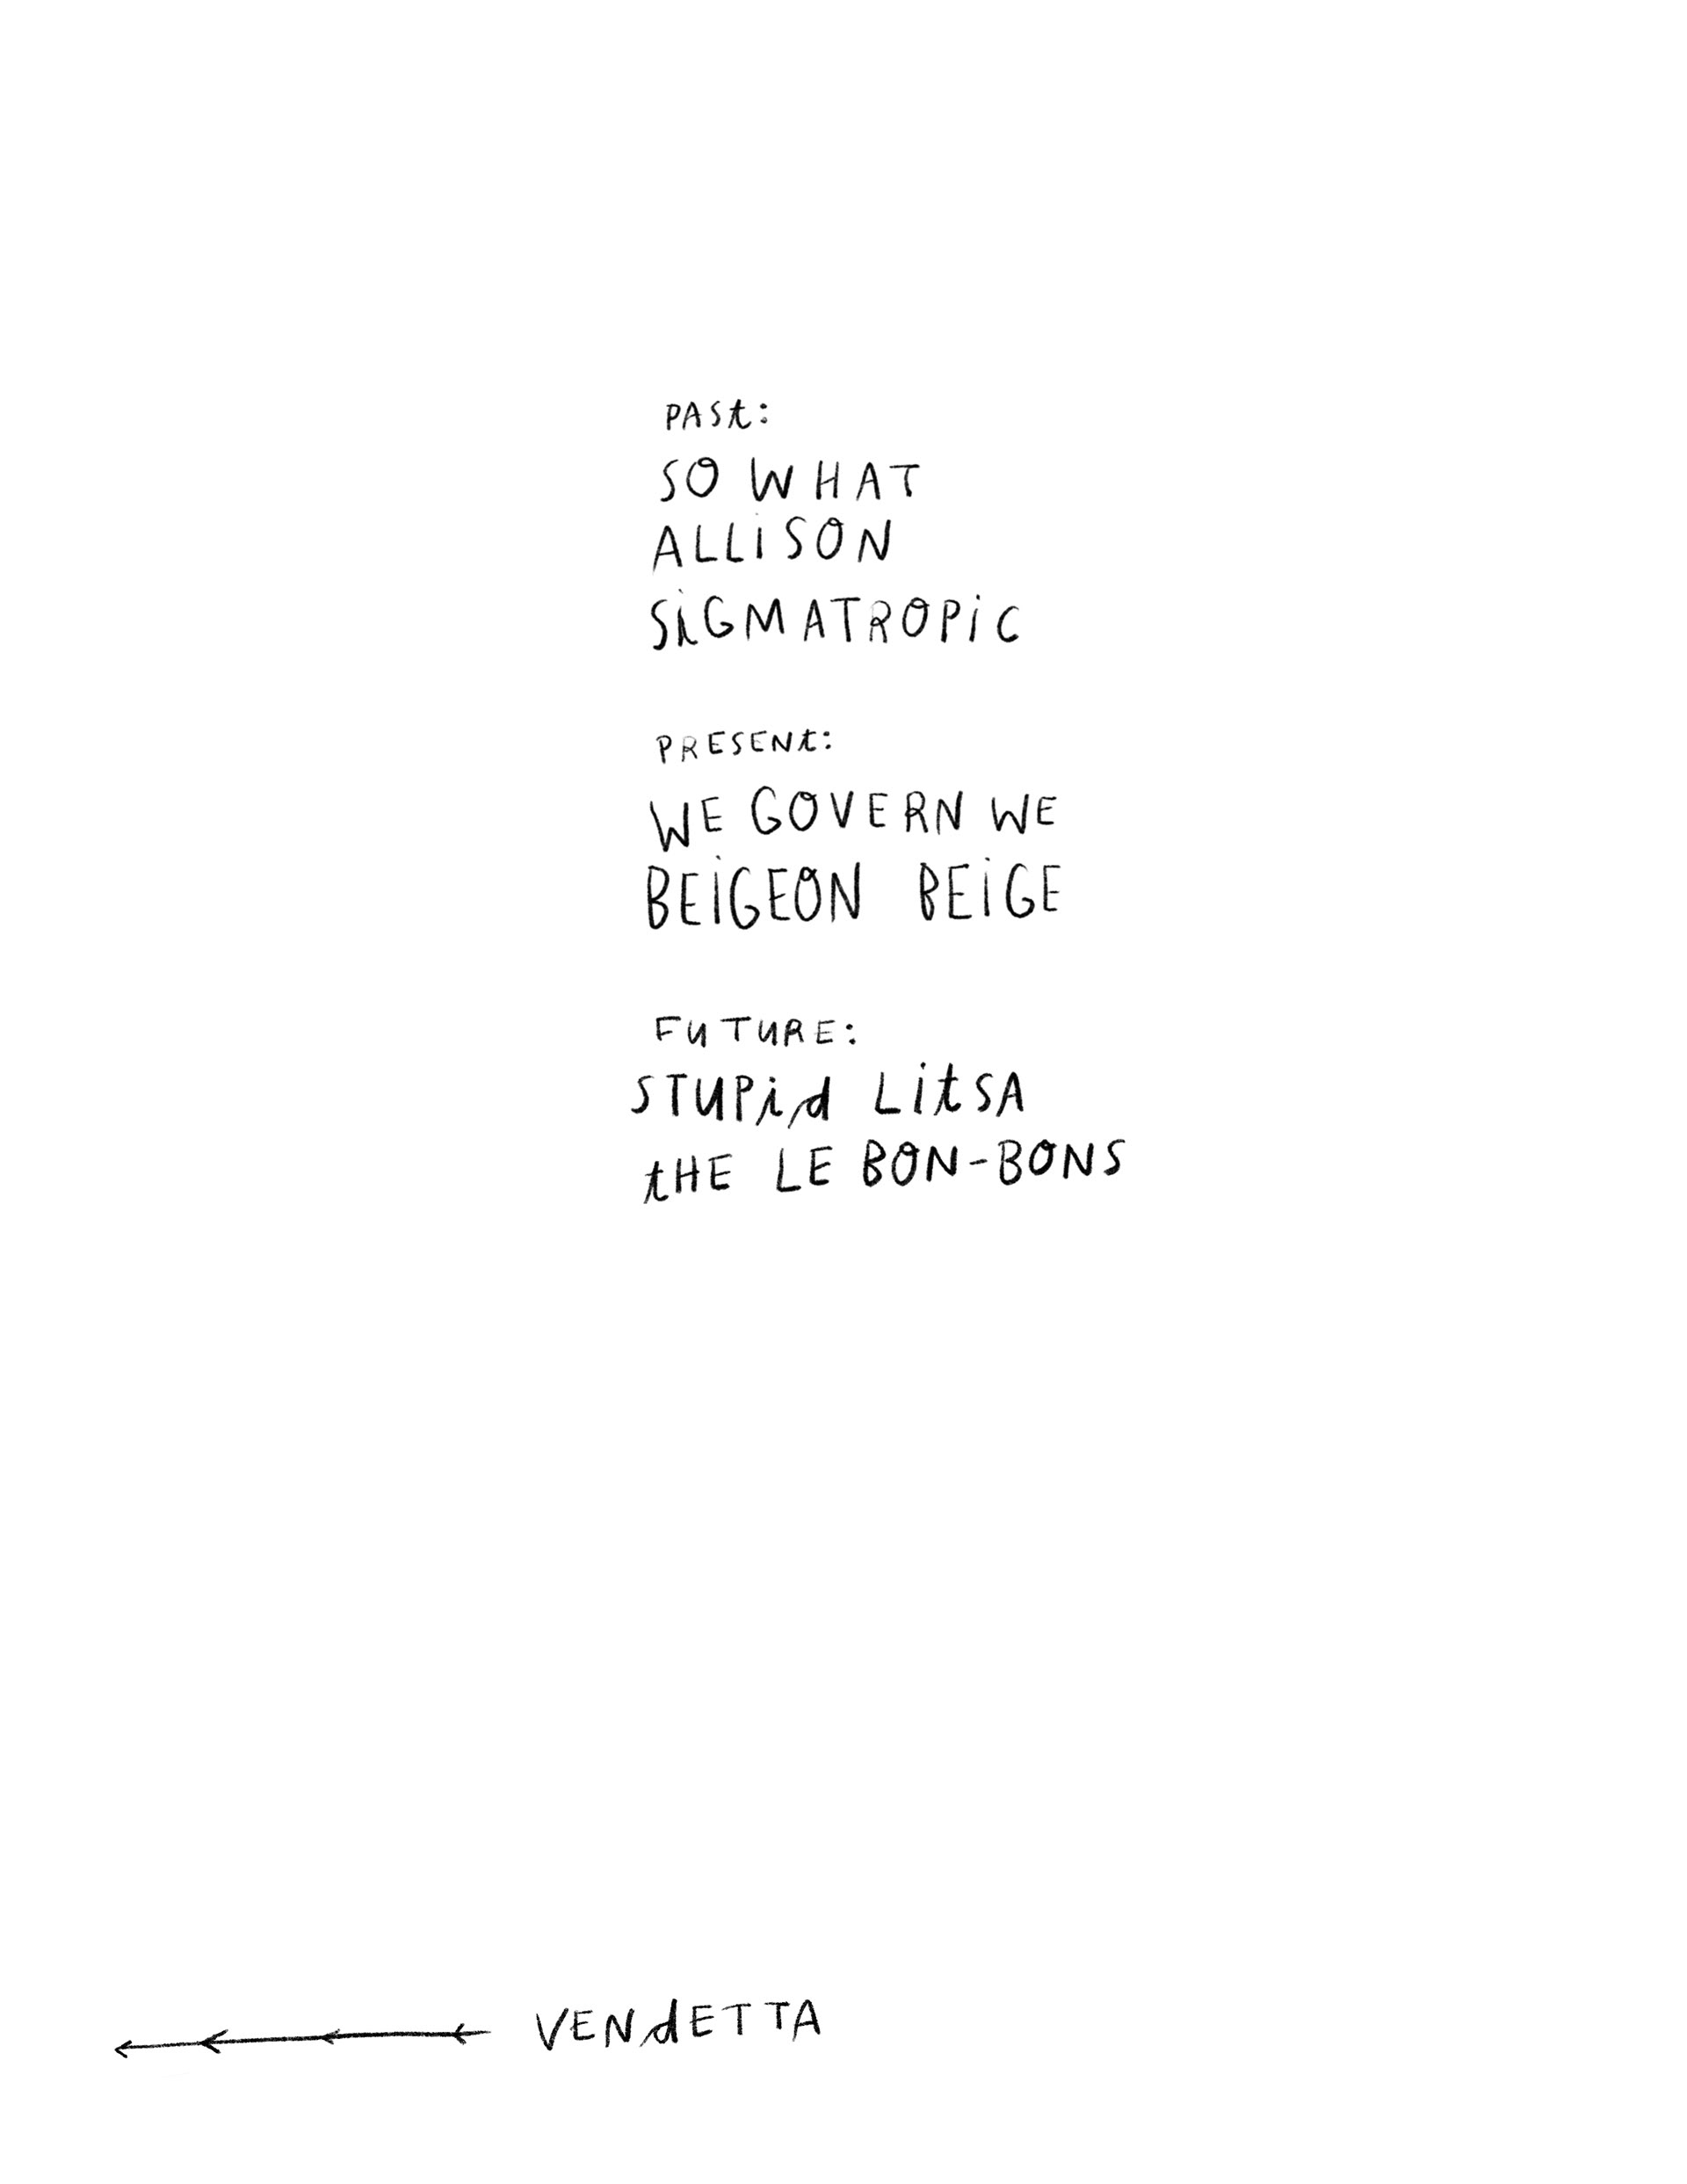 PASt:
SO WHAT
ALLiSON
SiGMATROPiC
PRESENt:
WE GOVERN WE
BEiGEON BEiGE
FUTURE:
STUPid LitSA
tHE LE BON-BONS
VENdETTA